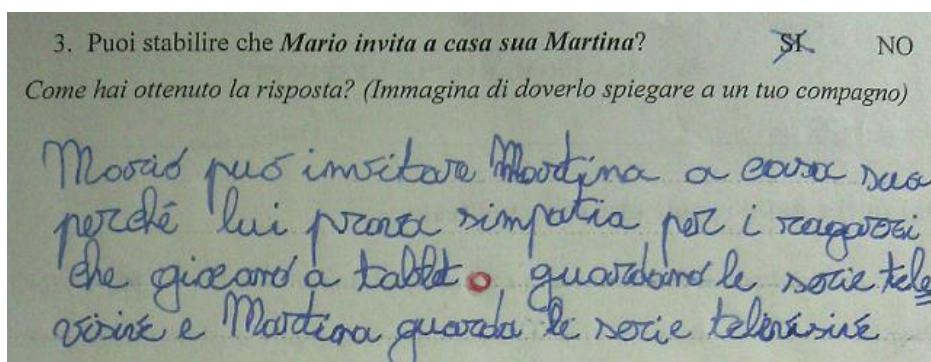 3. Puoi stabilire che Mario invita a casa sua Martina? SI NO
Come hai ottenuto la risposta? (Immagina di doverlo spiegare a un tuo compagno)
Mario può invitare Martina a casa sua
perché lui prova simpatia per i ragazzi
che giocano a tablet o guardano le serie tele
visive e Martina guarda le serie televisive